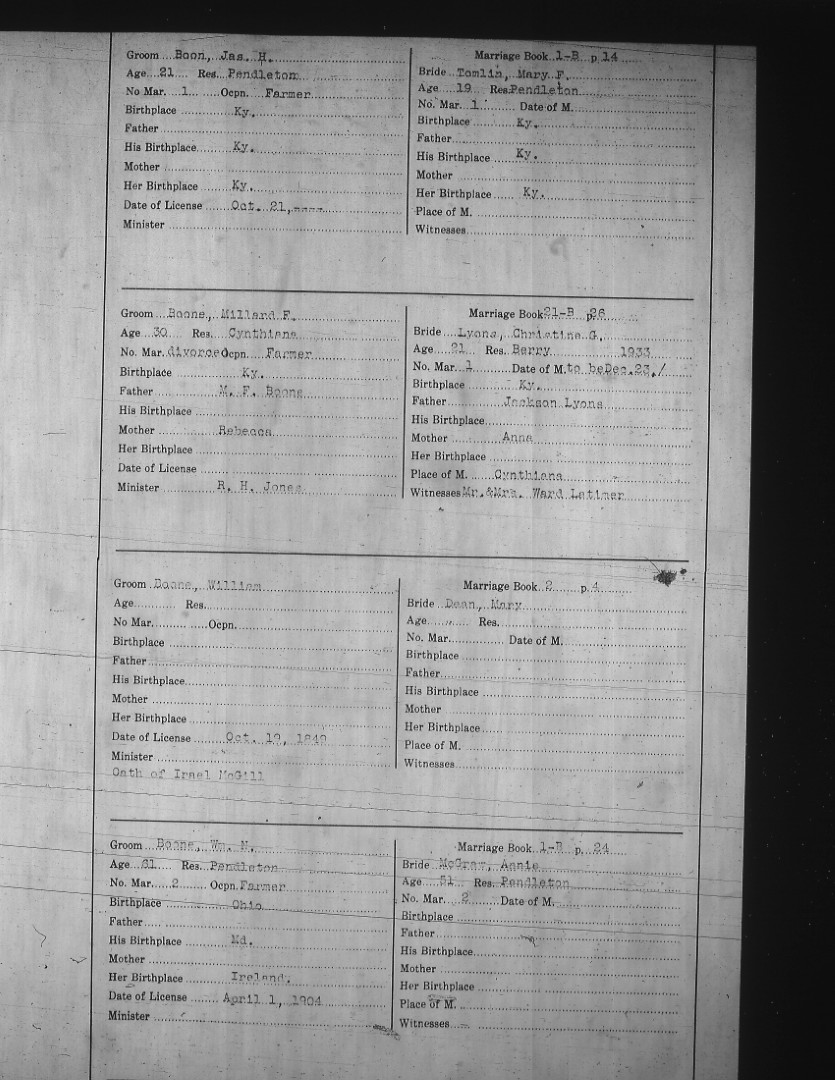 Groom Boon, Jas. H.
Age 21 Res. Pendleton
No Mar. 1 Ocpn. Farmer
Birthplace Ky.
Father
His Birthplace Ky.
Mother
Her Birthplace Ky.
Date of License Oct. 21, ----
Minister
Marriage Book 1-B p. 14
Bride Tomlin, Mary F.
Age 19 Res. Pendleton
No. Mar. 1 Date of M.
Birthplace Ky.
Father
His Birthplace Ky.
Mother
Her Birthplace Ky.
Place of M.
Witnesses
Groom Boone, Millard F.
Age 30 Res. Cynthiana
No. Mar. divorced Ocpn. Farmer
Birthplace Ky.
Father M. F. Boone
His Birthplace
Mother Rebecca
Her Birthplace
Date of License
Minister R. H. Jones
Marriage Book 21-B p. 26
Bride Lyons, Christine G.
Age 21 Res. Berry 1933
No. Mar. 1 Date of M. to be Dec. 23, /
Birthplace Ky.
Father Jackson Lyons
His Birthplace
Mother Anna
Her Birthplace
Place of M. Cynthiana
Witnesses Mr. & Mrs. Ward Latimer
Groom Boone, William
Age Res.
No Mar. Ocpn.
Birthplace
Father
His Birthplace
Mother
Her Birthplace
Date of License Oct. 19, 1849
Minister
Oath of Irael McGill
Marriage Book 2 p. 4
Bride Dean, Mary
Age Res.
No. Mar. Date of M.
Birthplace
Father
His Birthplace
Mother
Her Birthplace
Place of M.
Witnesses
Groom Boone, Wm. N.
Age 61 Res. Pendleton
No. Mar. 2 Ocpn. Farmer
Birthplace Ohio
Father
His Birthplace Md.
Mother
Her Birthplace Ireland.
Date of License April 1, 1904
Minister
Marriage Book 1-B p. 24
Bride McGraw, Annie
Age 51 Res. Pendleton
No. Mar. 2 Date of M.
Birthplace
Father
His Birthplace
Mother
Her Birthplace
Place of M.
Witnesses